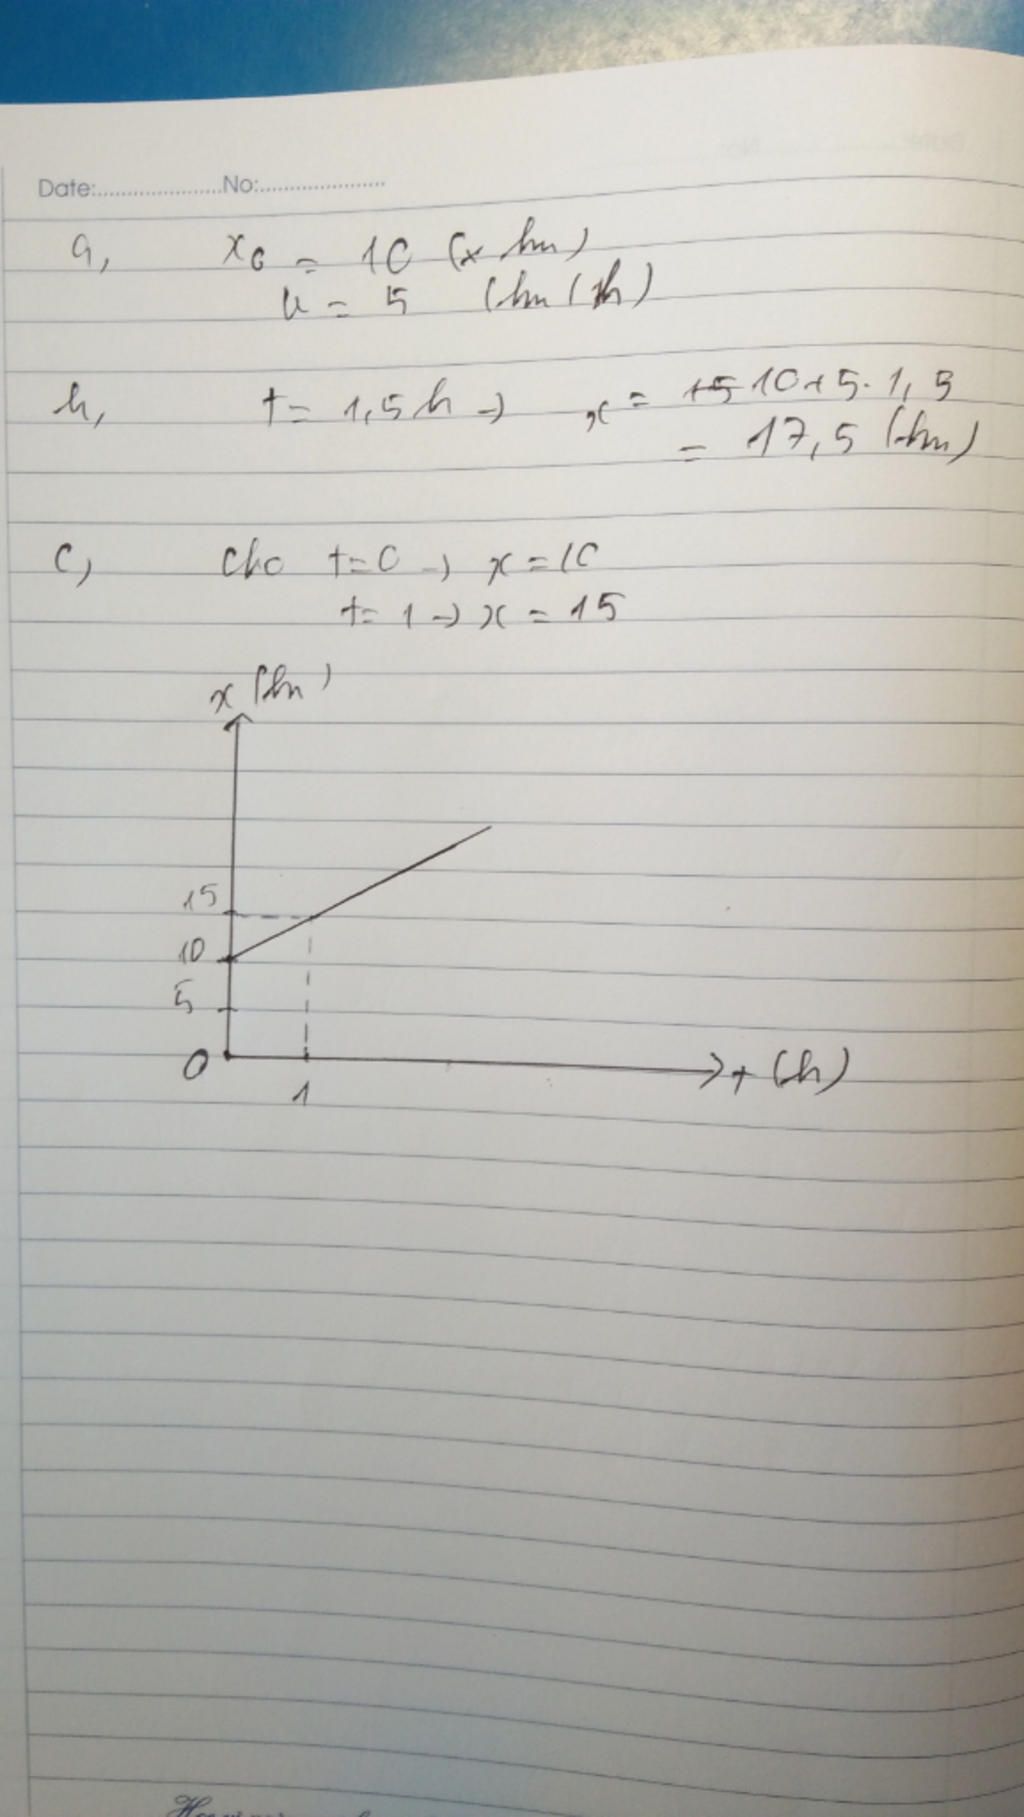 Date:.....................No:.....................
a, x₀ = 10 (x km)
v = 5 (km/h)
b, t = 1,5h → x = 15 10+5.1,5
= 17,5 (km)
c, Cho t=0 → x=10
t= 1 → x = 15
x (km)
15
10
5
0
1
t (h)